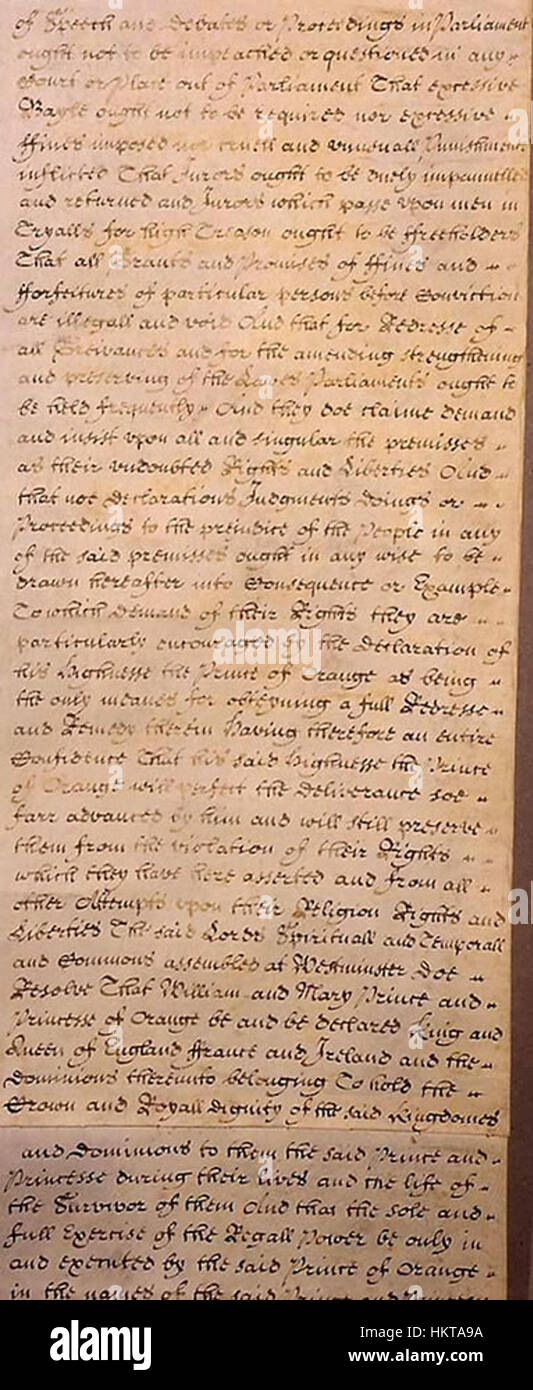 of Speech and Debates or Proceedings in Parliament
ought not to be impeached or questioned in any
Court or Place out of Parliament That excessive
Bayle ought not to be required nor excessive
ffines imposed nor cruell and unusuall Punishments
inflicted That Jurors ought to be duely impannelled
and returned and Jurors which passe upon men in
Tryalls for high Treason ought to be ffreeholders
That all Grants and Promises of ffines and
fforfeitures of particular persons before Conviction
are illegall and void And that for Redresse of
all Greivances and for the amending strengthening
and preserving of the Lawes Parliaments ought to
be held frequently And they doe claime demand
and insist upon all and singular the premisses
as their undoubted Rights and Liberties And
that noe Declarations Judgments Doings or
Proceedings to the prejudice of the People in any
of the said premisses ought in any wise to be
drawn hereafter into Consequence or Example
To which Demand of their Rights they are
particularly encouraged by the Declaration of
his Highnesse the Prince of Orange as being
the only meanes for obteyning a full Redresse
and Remedy therein Having therefore an entire
Confidence That his said Highnesse the Prince
of Orange will perfect the deliverance soe
farr advanced by him and will still preserve
them from the violation of their Rights
which they have here asserted and from all
other Attempts upon their Religion Rights and
Liberties The said Lords Spirituall and Temporall
and Commons assembled at Westminster Doe
Resolve That William and Mary Prince and
Princesse of Orange be and be declared King and
Queen of England ffrance and Ireland and the
Dominions thereunto belonging To hold the
Crown and Royall dignity of the said Kingdomes
and Dominions to them the said Prince and
Princesse during their lives and the life of
the Survivor of them And that the sole and
full Exercise of the Regall Power be only in
and executed by the said Prince of Orange
in the names of the said Prince and Princesse
alamy stock photo
HKTA9A
www.alamy.com